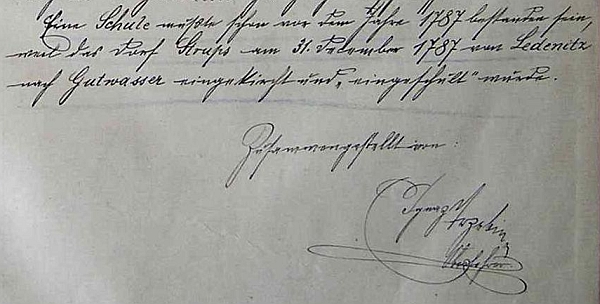 Eine Schule mußte schon vor dem Jahre 1787 bestanden sein,
weil das Dorf Strups am 31. Dezember 1787 von Ledenitz
nach Gutwasser eingekircht und „eingeschult“ wurde.
Zusammengestellt von:
Ignaz